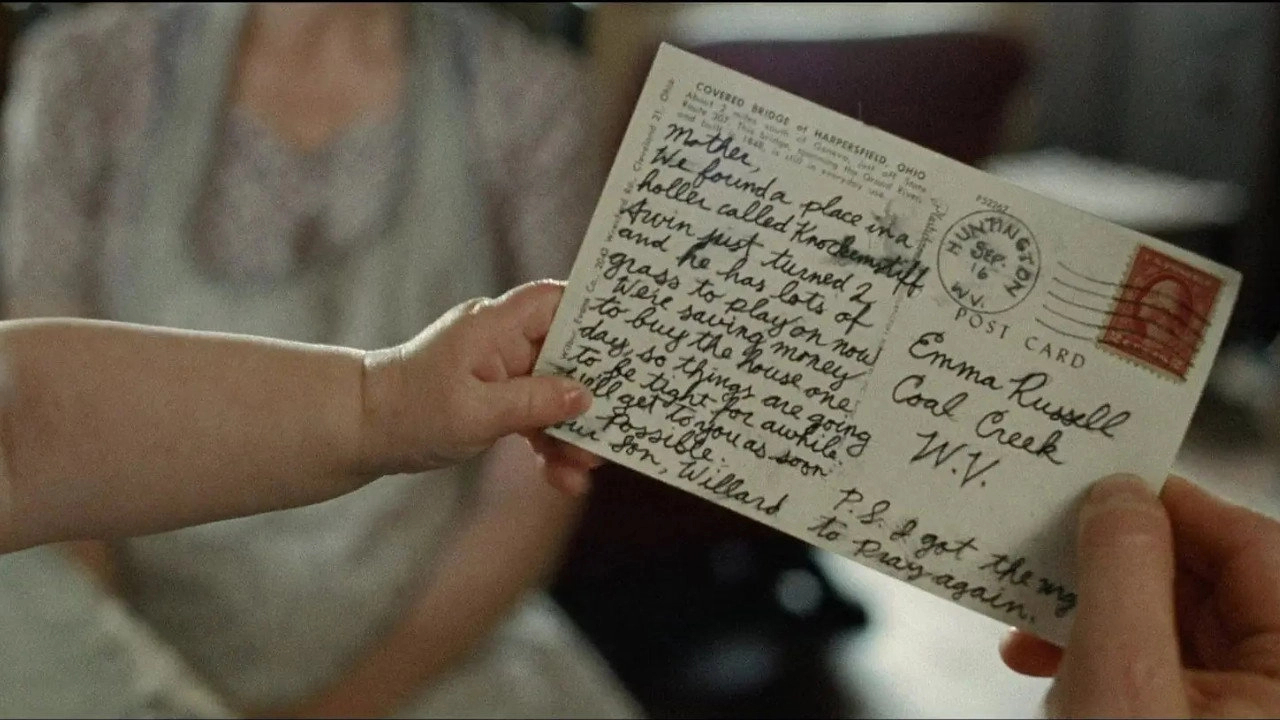 COVERED BRIDGE of HARPERSFIELD, OHIO
About 2 miles south of Geneva, just off State
Route 307. This bridge, spanning the Grand River,
and built in 1848, is still in everyday use.
Mother,
We found a place in a
holler called Knockemstiff
Arvin just turned 2
and he has lots of
grass to play on now
We're saving money
to buy the house one
day, so things are going
to be tight for awhile.
will get to you as soon
Possible.
son, Willard
P.S. I got the
to Pray again.
Cleveland 21, Ohio
P52262
HUNTINGTON
SEP.
16
W.V.
POST CARD
Emma Russell
Coal Creek
W.V.